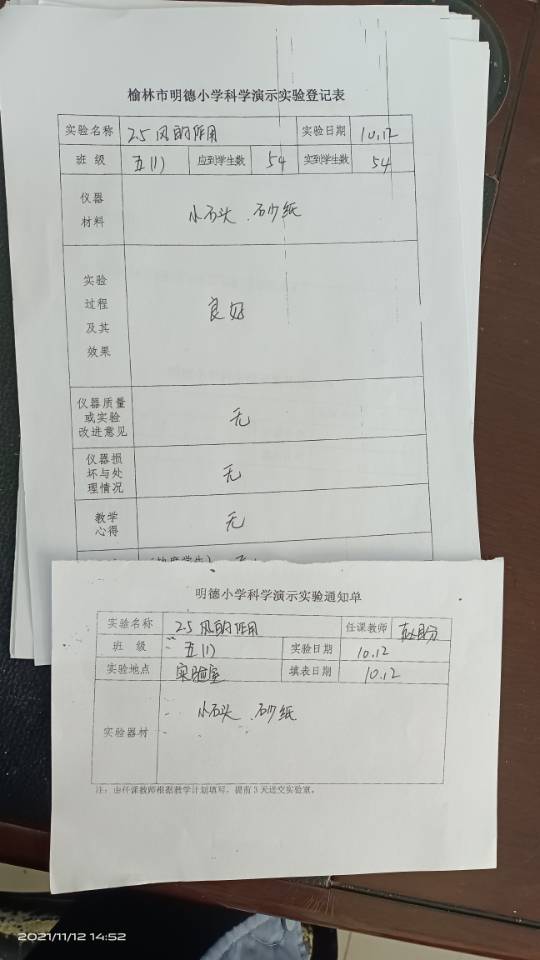 榆林市明德小学科学演示实验登记表
实验名称 2.5 风的作用 实验日期 10.12
班 级 五(1) 应到学生数 54 实到学生数 54
仪器
材料
小石头、砂纸
实验
过程
及其
效果
良好
仪器质量
或实验
改进意见
无
仪器损
坏与处
理情况
无
教学
心得
无
明德小学科学演示实验通知单
实验名称 2.5 风的作用 任课教师
班 级 五(1) 实验日期 10.12
实验地点 实验室 填表日期 10.12
实验器材
小石头、砂纸
注：由任课教师根据教学计划填写，提前3天送交实验室。
2021/11/12 14:52